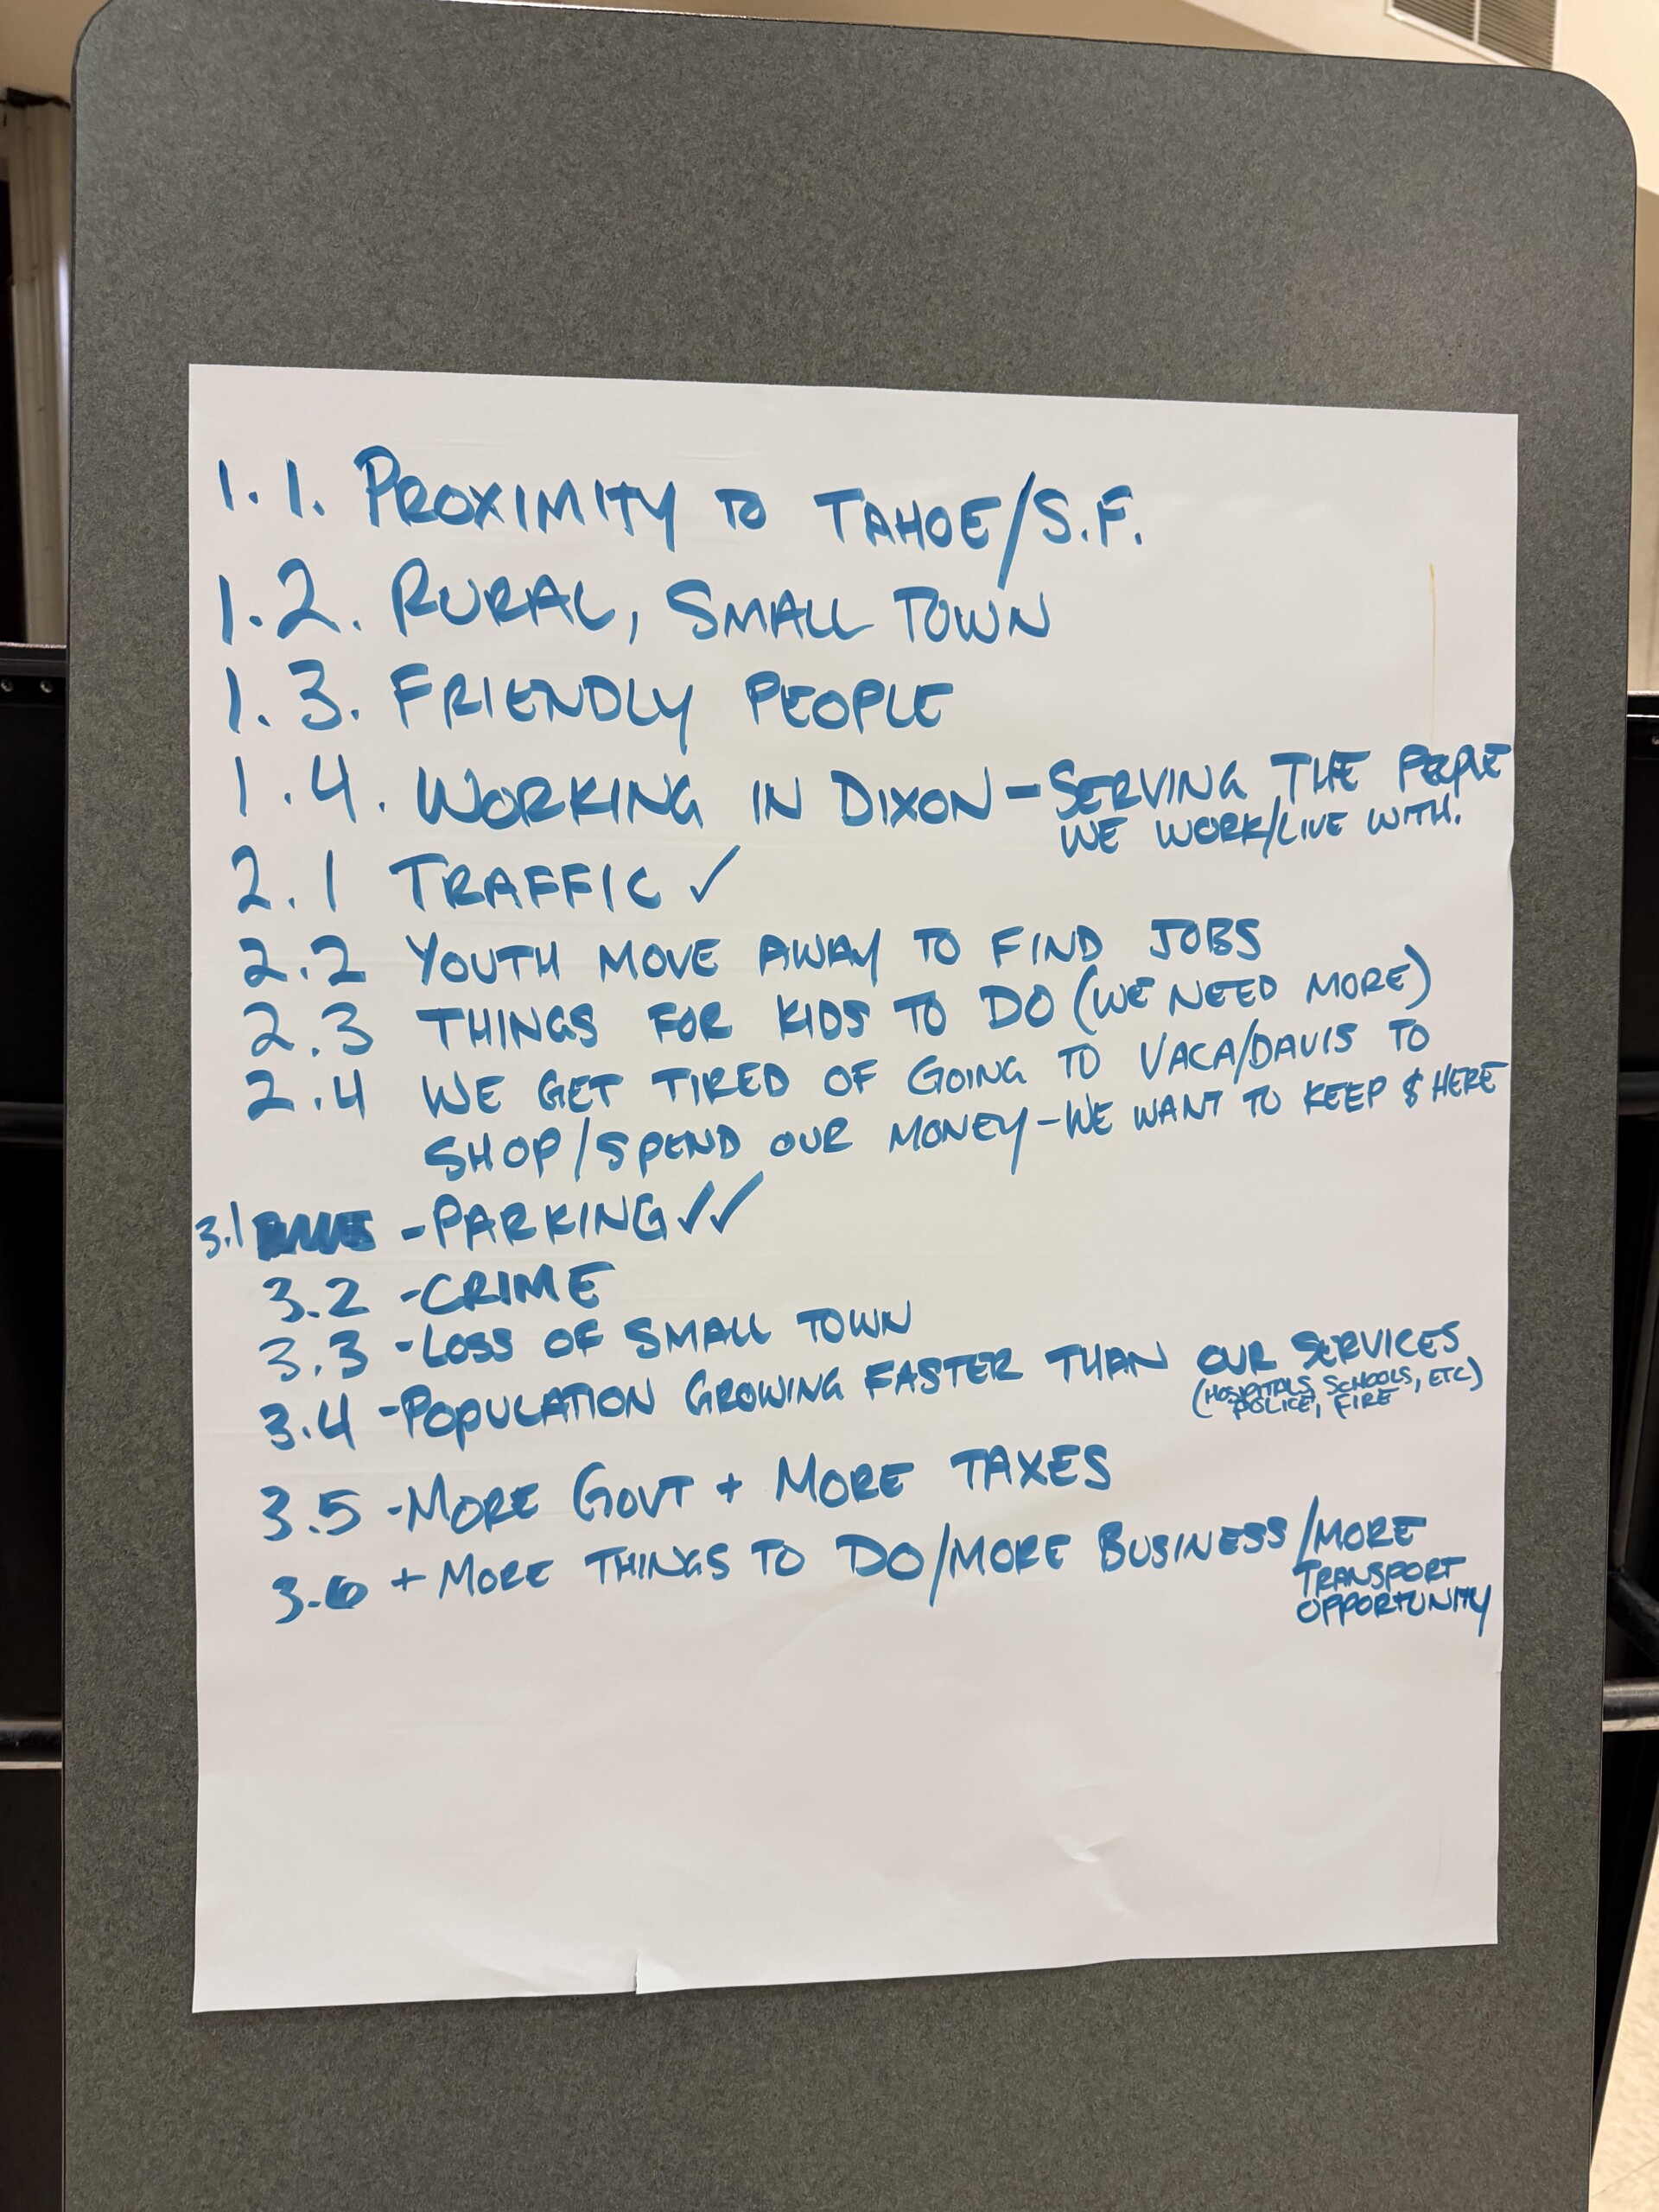 1.1. PROXIMITY TO TAHOE/S.F.
1.2. RURAL, SMALL TOWN
1.3. FRIENDLY PEOPLE
1.4. WORKING IN DIXON - SERVING THE PEOPLE
WE WORK/LIVE WITH.
2.1 TRAFFIC ✓
2.2 YOUTH MOVE AWAY TO FIND JOBS
2.3 THINGS FOR KIDS TO DO (WE NEED MORE)
2.4 WE GET TIRED OF GOING TO VACA/DAVIS TO
SHOP/SPEND OUR MONEY - WE WANT TO KEEP $ HERE
3.1 - PARKING ✓✓
3.2 - CRIME
3.3 - LOSS OF SMALL TOWN
3.4 - POPULATION GROWING FASTER THAN OUR SERVICES
(HOSPITALS, SCHOOLS, ETC)
POLICE, FIRE
3.5 - MORE GOVT + MORE TAXES
3.6 + MORE THINGS TO DO/MORE BUSINESS/MORE
TRANSPORT
OPPORTUNITY